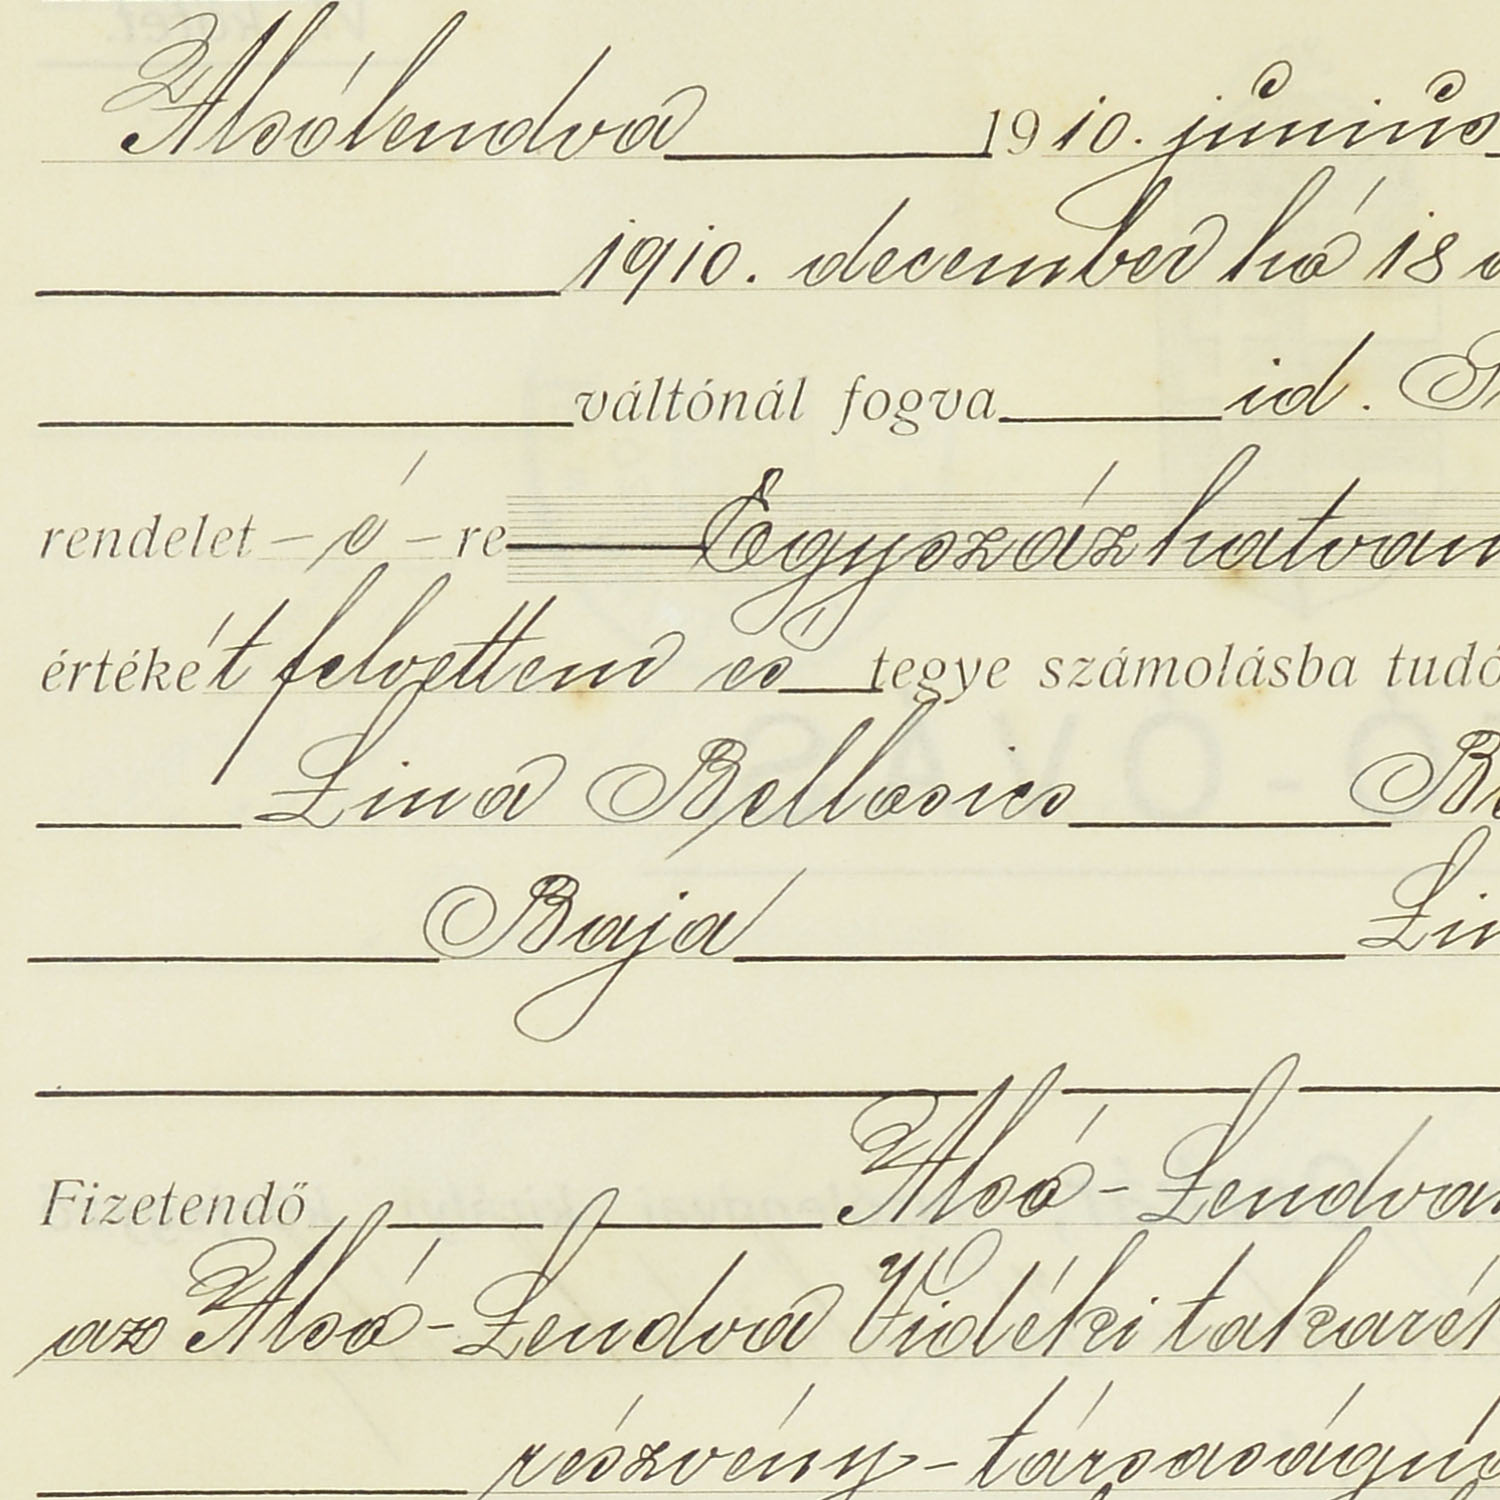 Alsólendva 1910. június
1910. december hó 18
váltónál fogva id.
rendelet – é – re Egyszázhatvan
értékét felvettem és tegye számolásba tudó
Lina Bellosics
Baja Lin
Fizetendő Alsó-Lendva
az Alsó-Lendva Vidéki takarék
részvény-társaságn